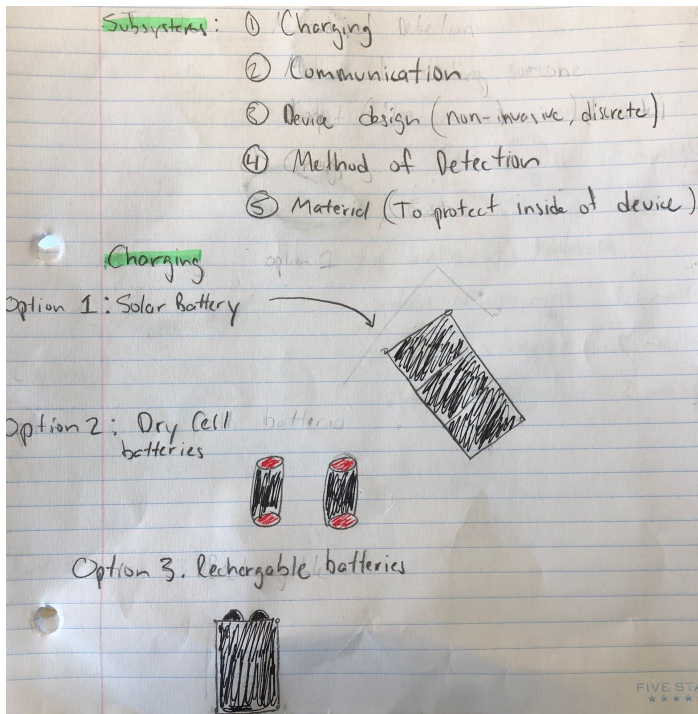 Subsystems: ① Charging
② Communication
③ Device design (non-invasive, discrete)
④ Method of Detection
⑤ Material (To protect inside of device)
Charging
Option 1: Solar Battery
Option 2: Dry Cell
batteries
Option 3. Rechargable batteries
FIVE STA